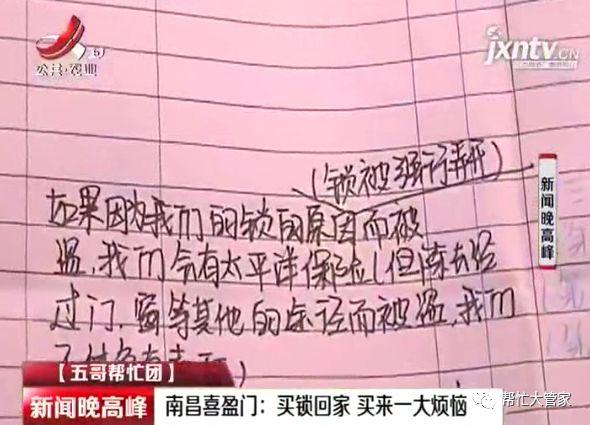 5
公共·农业
jxntv.CN
(锁被强行撬开)
如果因为我们的锁的原因而被
盗,我们会有太平洋保险(但除去经
过门.窗等其他的途径而被盗,我们
新闻晚高峰
【五哥帮忙团】
新闻晚高峰 南昌喜盈门：买锁回家 买来一大烦恼
帮忙大管家